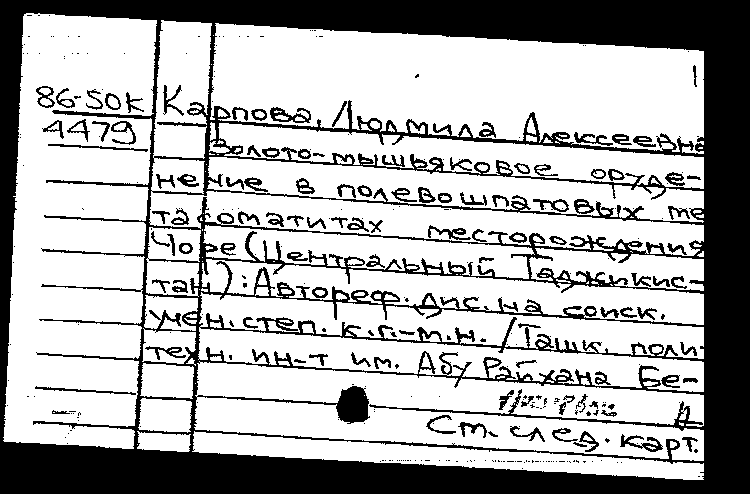 1
86-50К Карпова, Людмила Алексеевна
4479
Золото-мышьяковое орудe-
нение в полевошпатовых ме
тасоматитах месторождения
Чоре (Центральный Таджикис-
тан): Автореф. дис. на соиск.
учен. степ. к.г.-м.н. / Ташк. поли-
техн. ин-т им. Абу Райхана Бе-
Д
См. след. карт.